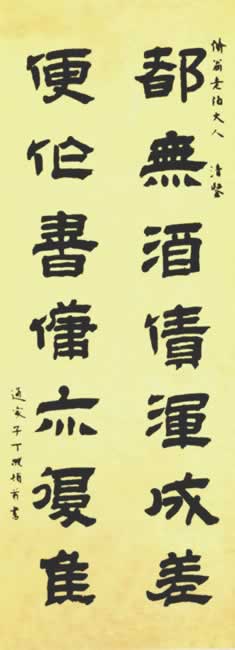 翁老伯大人 清鑒
都無酒債渾成差
便作書傭亦復佳
通家子丁頓首書